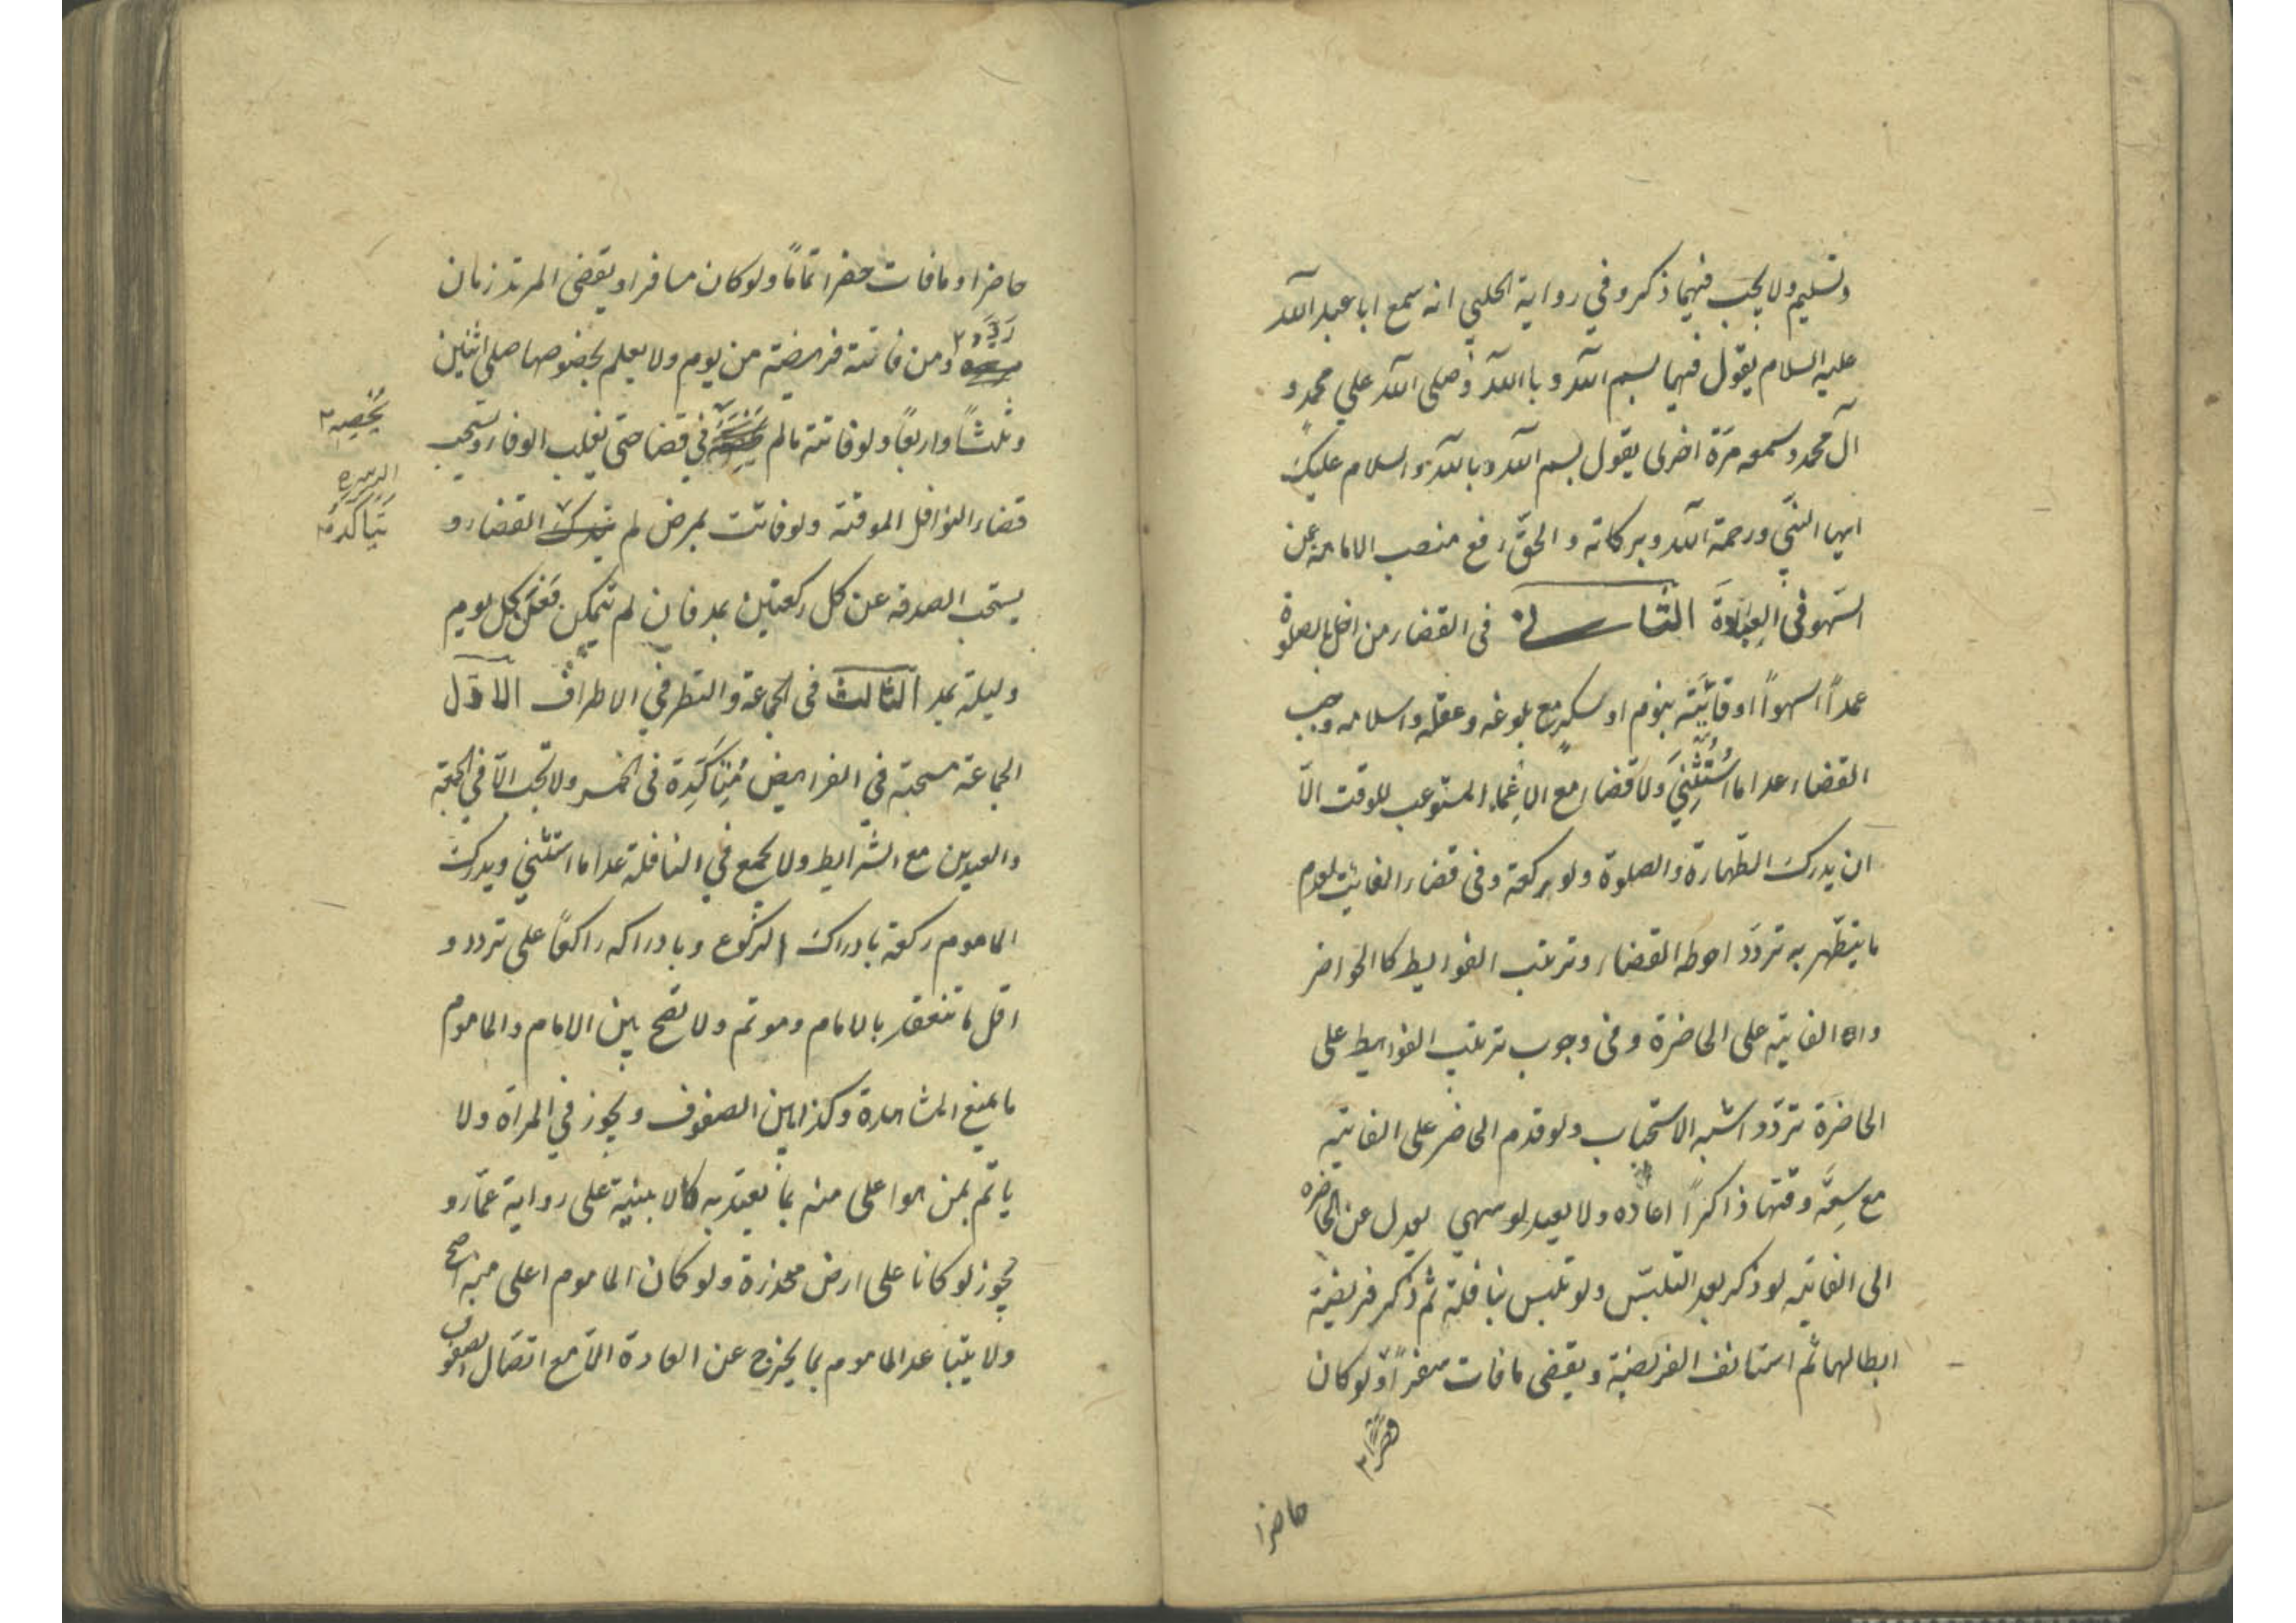 وتسليم ولا يجب فيهما ذكر وفي رواية الحلبي انه سمع ابا عبد الله
عليه السلام يقول فيهما بسم الله وبا الله وصلى الله على محمد و
آل محمد وسمعه مرّة اخرى يقول بسم الله وبالله والسلام عليك
ايها النبي ورحمة الله وبركاته والحقّ رفع منصب الامامة عن
السّهو في العبادة الثاني في القضاء من اخل بالصلوة
عمداً اسهواً او فاتته بنوم او سكرٍ مع بلوغه وعقله واسلامه وجب
القضاء عدا ما استُثْنِيَ ولا قضاء مع الاغماء المستوعب للوقت الّا
ان يدرك الطّهارة والصلوة ولو بركعة وفي قضاء الفائت لعدم
ما يتطّهر به تردّد احوطه القضاء وترتب الفوايط كا الحواضر
والفايته على الحاضرة وفي وجوب ترتيب الفوايط على
الحاضرَة تردّد اشبه الاستحباب ولو قدم الحاضر على الفايته
مع سِعَة وقتها ذاكراً اعاده ولا يعيد لو سهى يعدل عن الحاضره
الى الفايته لو ذكر بعد التلبّس ولو تلبس بنافلة ثم ذكر فريضة
ابطالهما ثم استانف الفريضة ويقضى مافات سفراً ولو كان
قصراً ٢
حاضرا
حاضرا ومافات حضرا تماماً ولو كان مسافرا ويقضى المرتد زمان
رَدَّته ٢
ومن فاتته فريضة من يوم ولا يعلم بخصوصها صلى اثنين
وثلثاً واربعاً ولو فاتته مالم في قضا حتى يغلب الوفا ويستحب
يُحْصِه ٢
قضاء النوافل الموقتة ولو فاتت بمرض لم يترك القضاء و
يتاكد ٢
يستحب الصدقه عن كل ركعتين بمد فان لم يتمكن فَعَنْ كل يوم
وليلة بمد الثالث في الجماعة والنظر في الاطراف الاوّل
الجماعة مستحبة في الفرايض مُتِاَكَّدِة في الخمس ولا تجب الّا في الجمعة
والعيدين مع الشّرايط ولا تجمع في النافلة عدا ما استثنى ويدرك
الماموم ركعة بادراك الركوع وبادراكه راكعاً على تردد و
اقل ما تنعقد بالامام وموتم ولا تصح بين الامام والماموم
ما يمنع المشاهدة وكذا بين الصفوف ويجوز في المراة ولا
ياتم بمن هو اعلى منه بما يعتد به كالابنية على رواية عمّار و
يجوز لو كانا على ارض منحدرة ولو كان الماموم اعلى منه صح
ولا يتباعد الماموم بما يخرج عن العادة الّا مع اتصال الصفوف